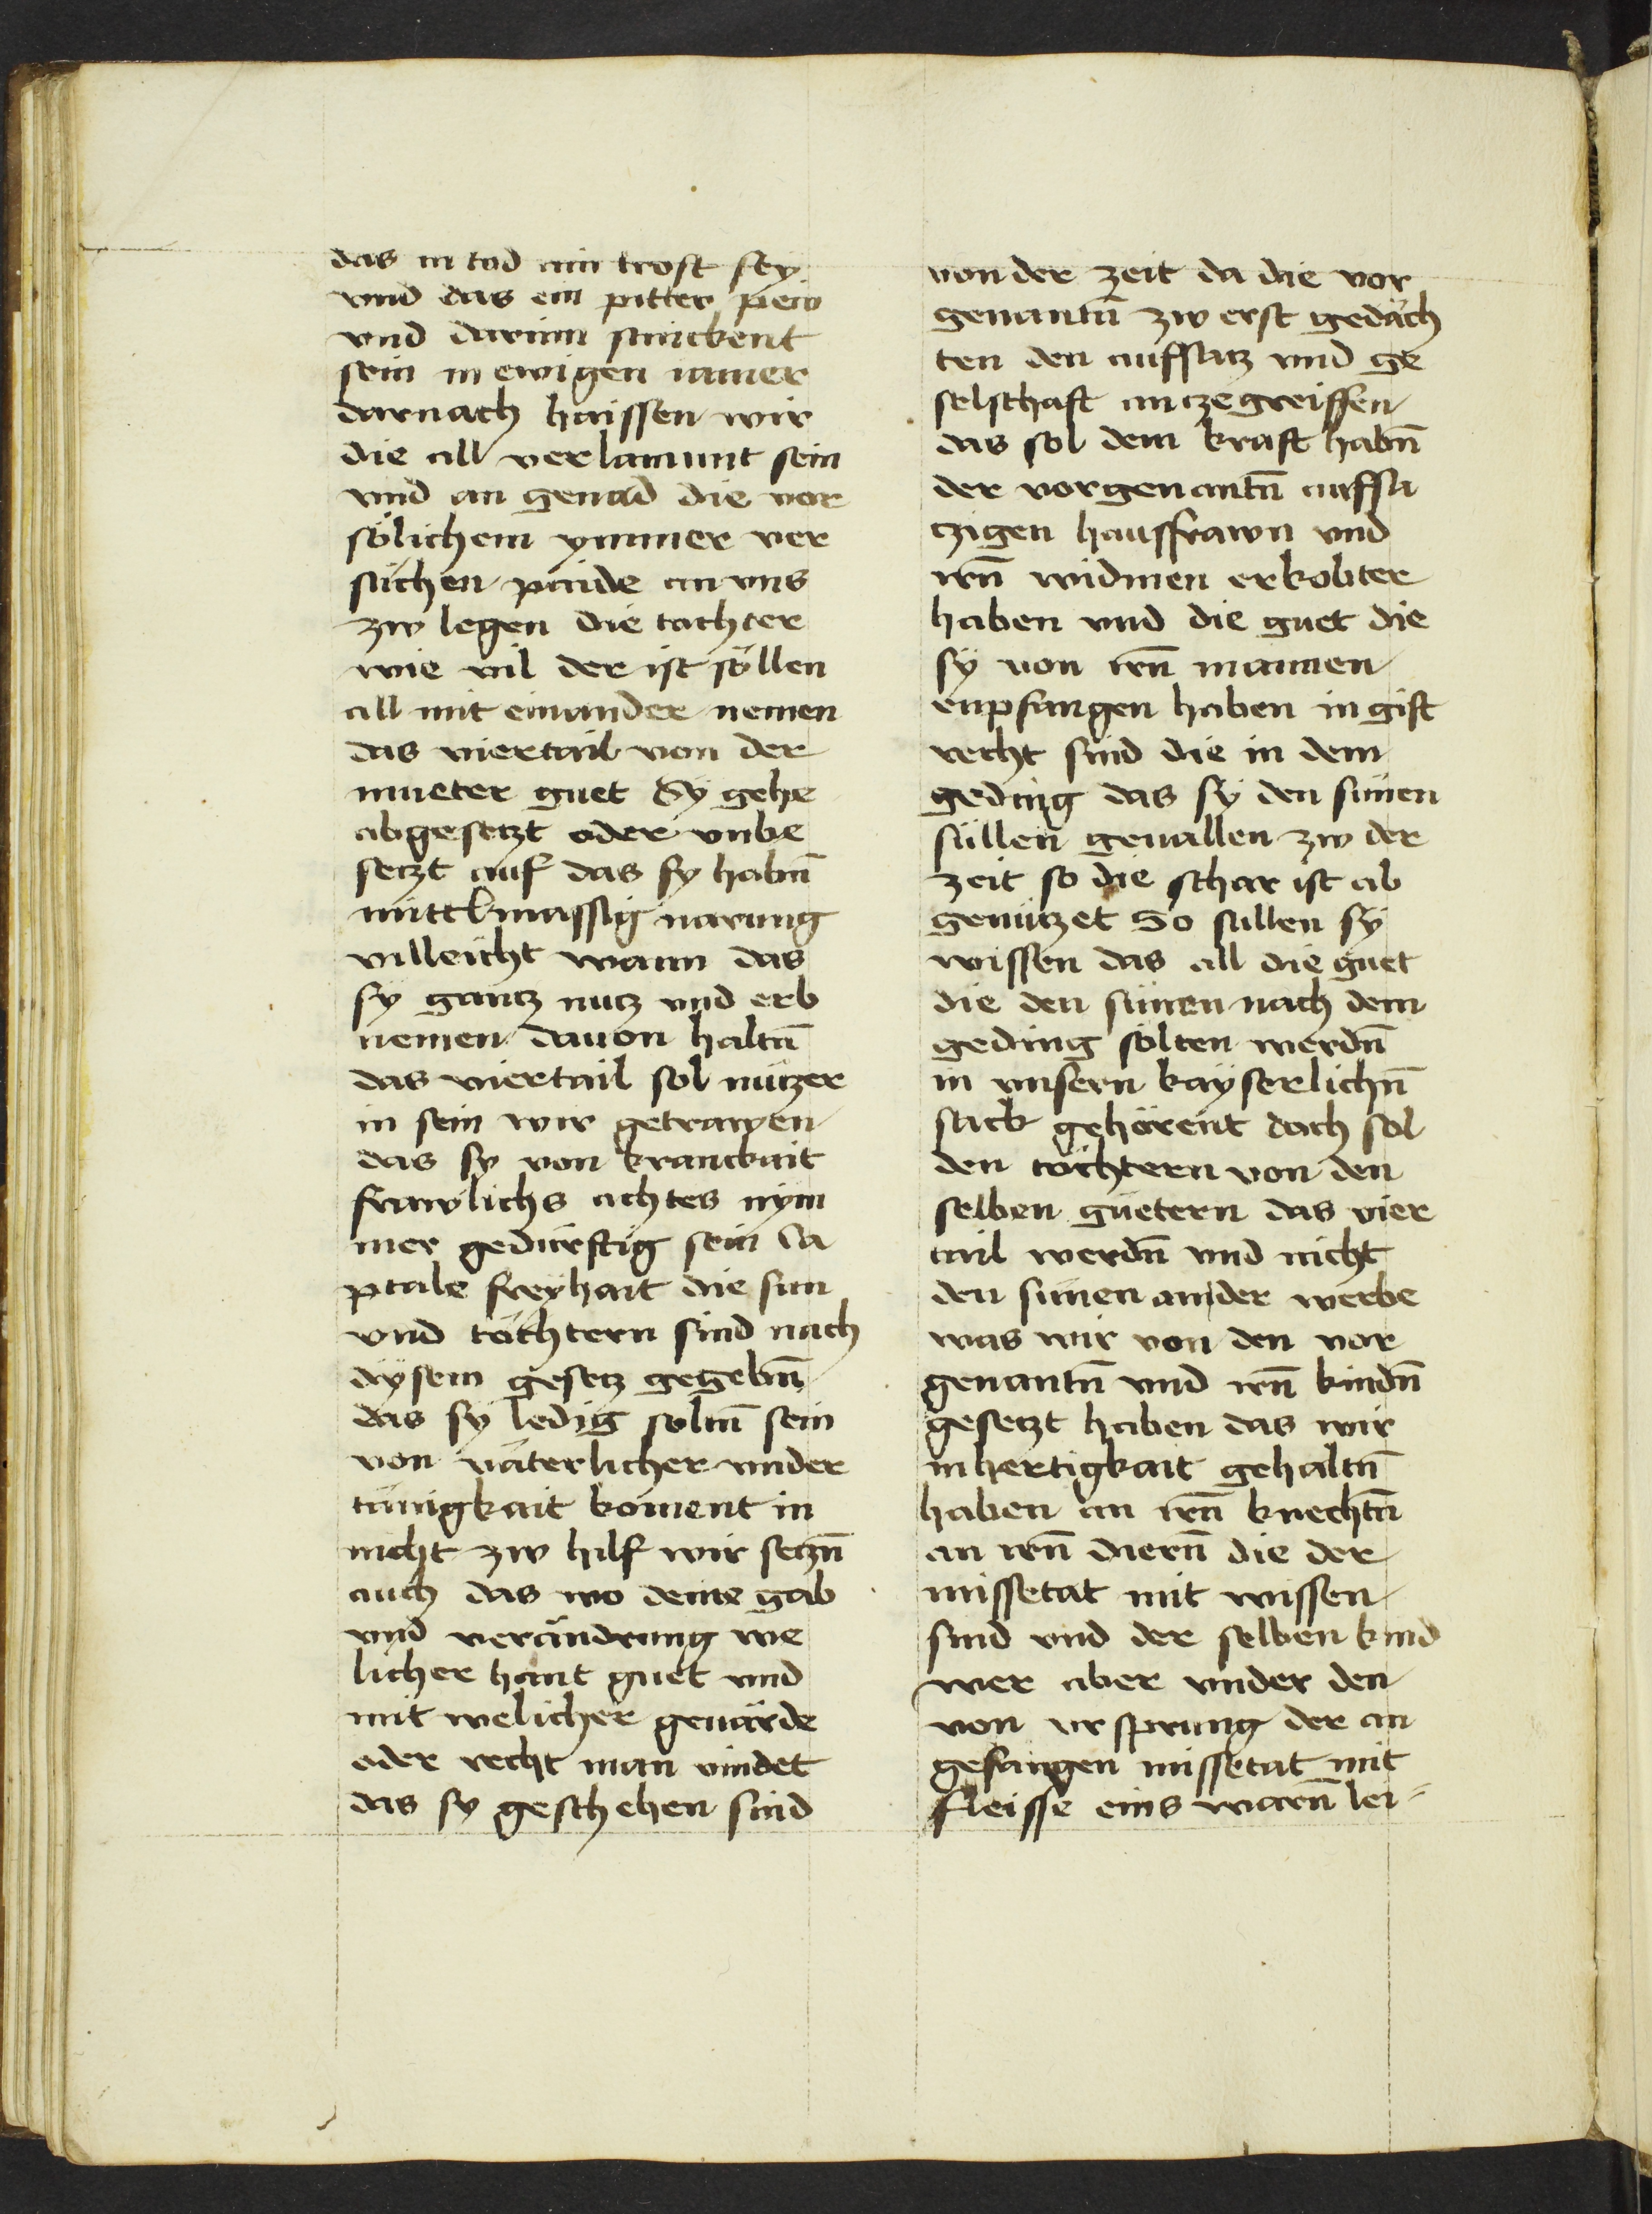 das in tod ain trost sey
vnd das ein pitter pein
vnd darinn stinckent
sein in ewigen iamer
darnach haissen wir
die all verlaumnt sein
vnd an genad die vor
sölichem ymmer ver
süchen paide an vns
zw legen die tochter
wie vil der ist söllen
all mit einander nemen
das viertail von der
mueter guet Sy gehe
abgesetzt oder vnbe
setzt auf das sy habn̄
mittelmassig narung
villeicht wann das
sy gantz nutz vnd erb
nemen dauon haltn̄
das viertail sol nützer
in sein wir getrawen
das sy von kranckait
frawlichs achtes nym
mer gedürftig sein Ca
ptale freyhait die sun
vnd töchtern sind nach
dysem gesetz gegebn̄
das sy ledig solnn̄ sein
von väterlicher vnder
tänigkait koment in
nicht zw hilf wir setzn̄
auch das wo deine gab
vnd verändrung we
licher hant guet vnd
mit welicher geuärde
oder recht man vindet
das sy geschehen sind
von der zeit da die vor
genantn̄ zw erst gedäch
ten den auffsatz vnd ge
selschaft an tzegreiffen
das sol dem kraft habn̄
der vorgenantn̄ auffsa
tzigen hausfrawn vnd
irn̄ widmen erkobter
haben vnd die guet die
sÿ von irn̄ mannen
enpfangen haben in gift
recht sind die in dem
geding das sÿ den sünen
süllen geuallen zw der
zeit so die schar ist ab
genützet So sullen sÿ
wissen das all die guet
die den sünen nach dem
geding sölten werdn̄
in vnsern kaÿserlichn̄
sack gehörent doch sol
den töchtern von den
selben güetern das vier
tail werdn̄ vnd nicht
den sünen ander werbe
was wir von den vor
genantn̄ vnd irn̄ kindn̄
gesetzt haben das wir
in hertigkait gehaltn̄
haben an irn̄ knechtn̄
an irn̄ diern̄ die der
missetat mit wissen
sind vnd der selben kind
wer aber vnder den
von vrsprung der an
gefangen missetat mit
fleisse eins warn̄ lei-